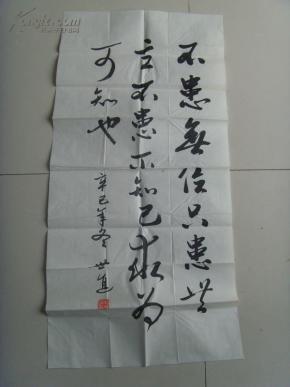 不患無位只患
立不患不知己求为
可知也
辛巳年冬 世進